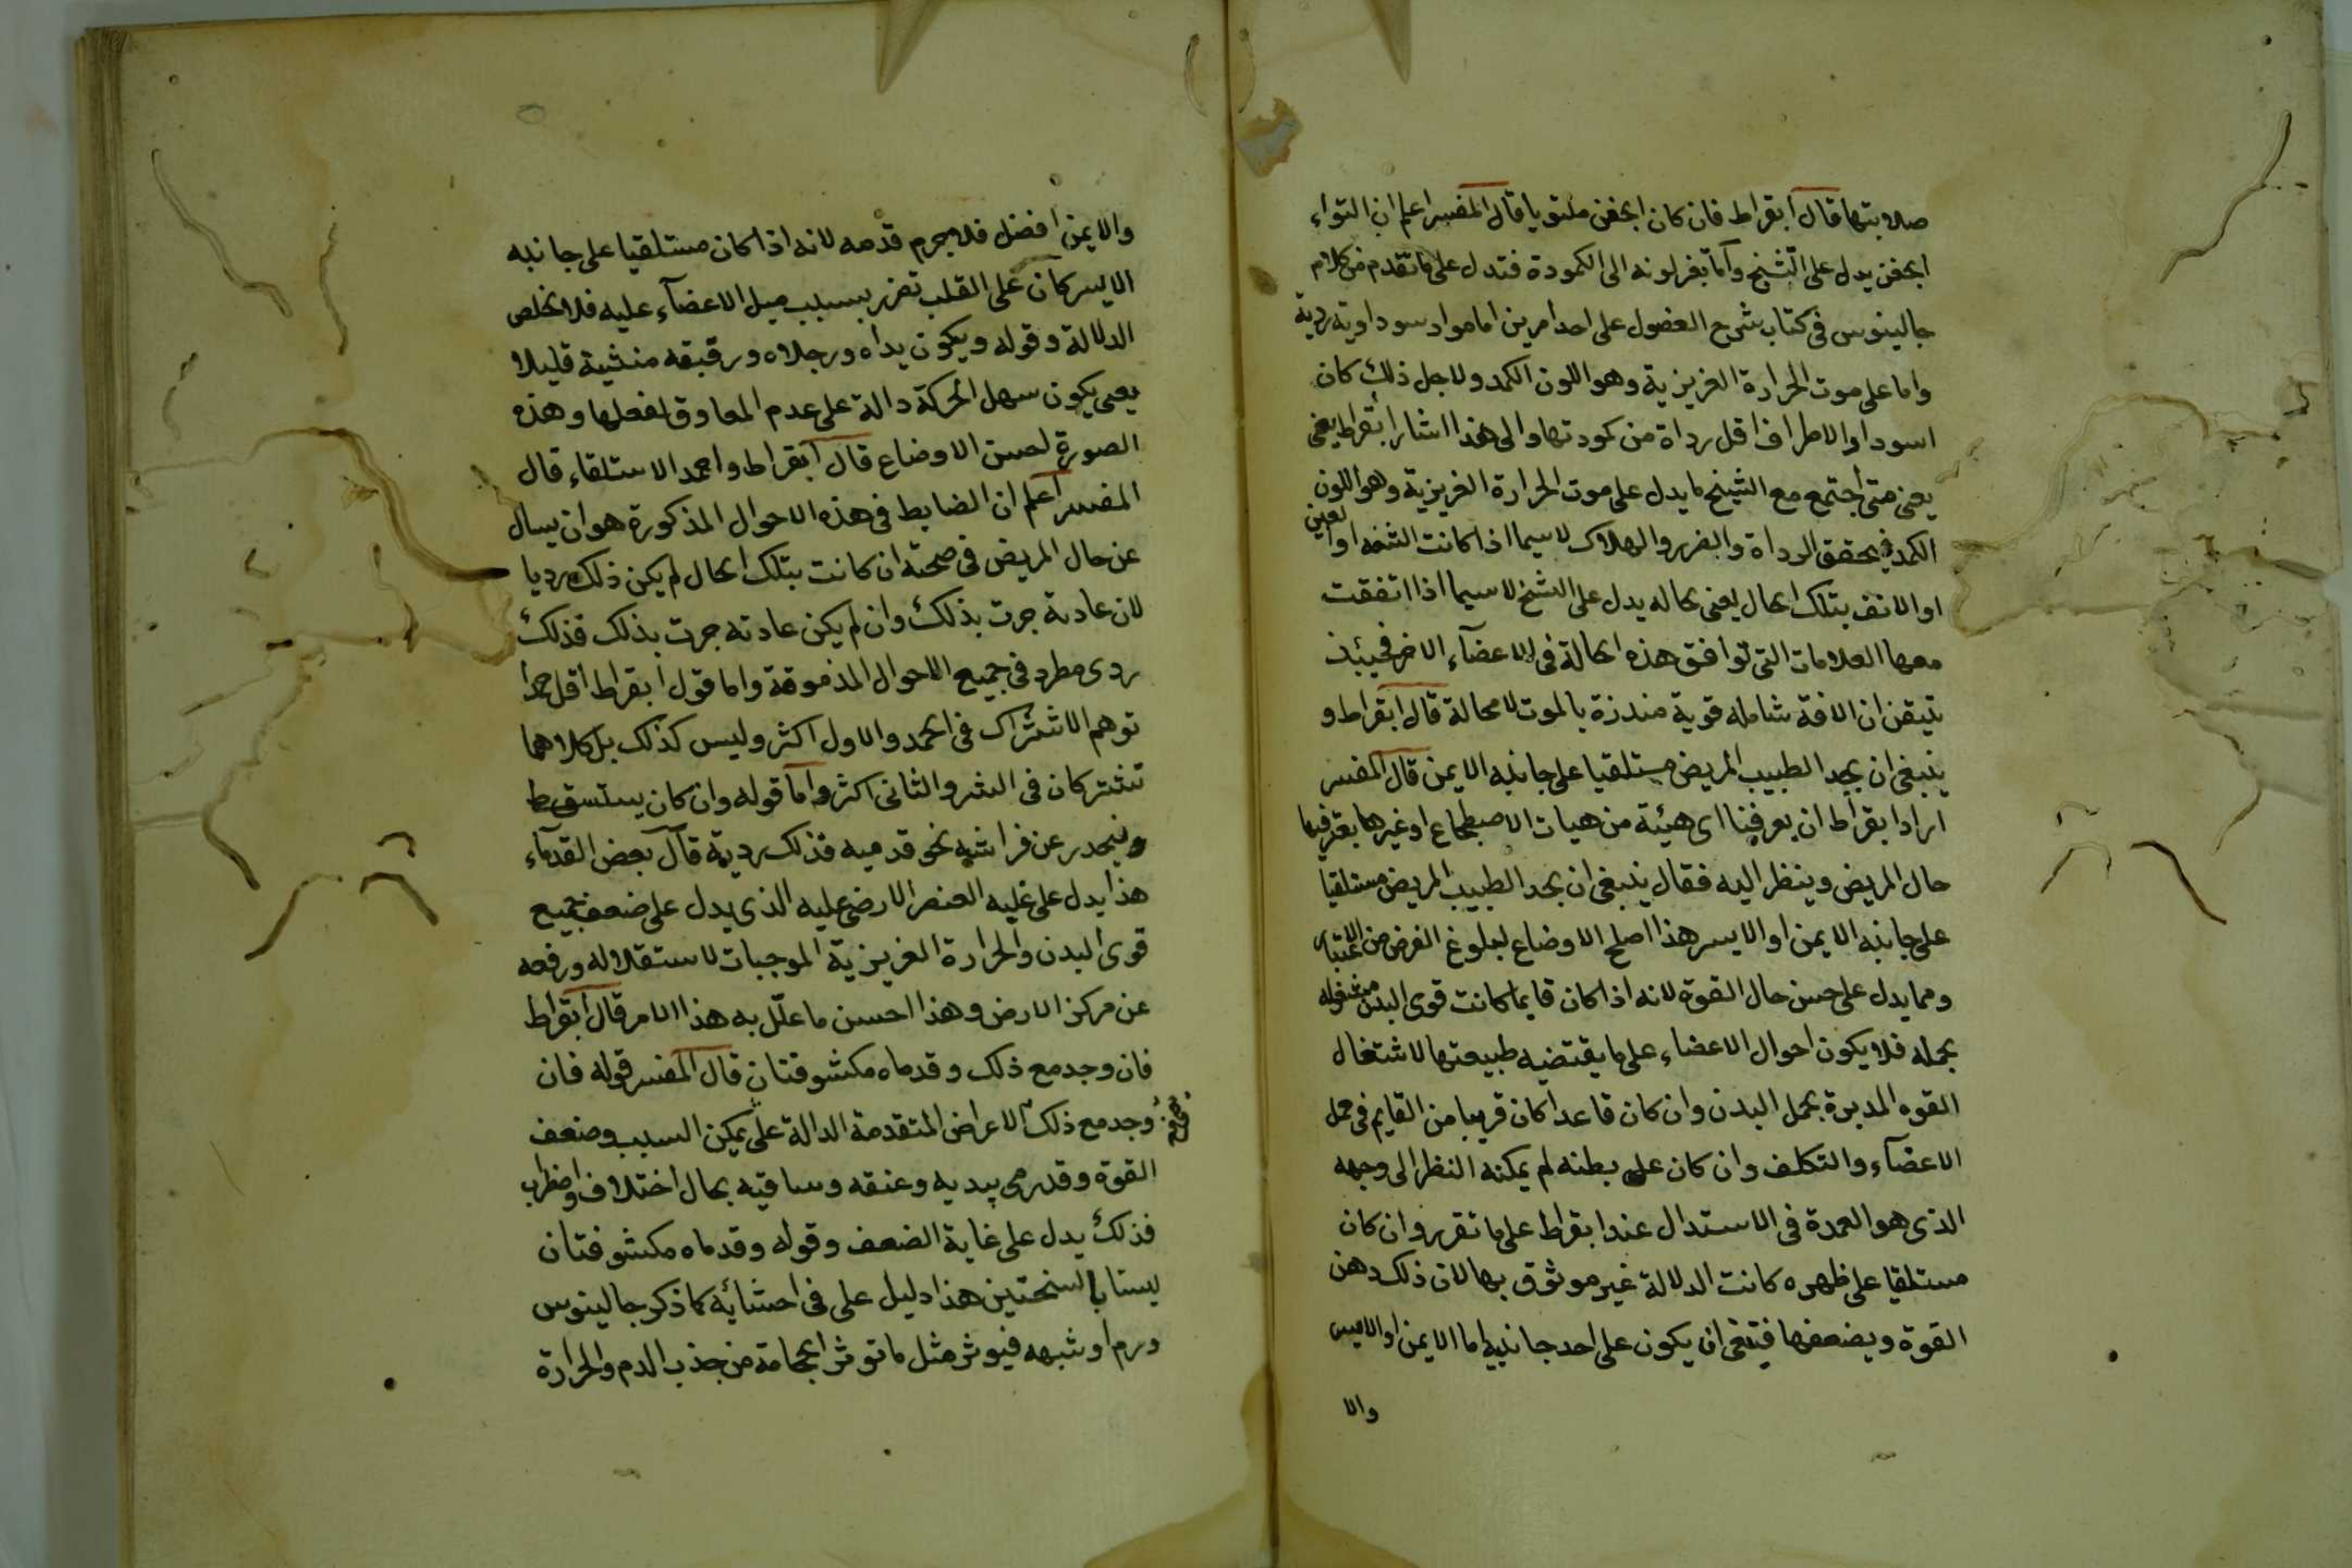 صلابتها قال ابقراط فان كان الجفن ملتويا قال المفسر اعلم ان التواء
الجفن يدل على التشنج واما تغير لونه الى الكمودة فتدل على ما تقدم من كلام
جالينوس فى كتاب شرح الفصول على احد امرين اما مواد سوداوية ردية
واما على موت الحرارة الغريزية وهو اللون الكمد ولاجل ذلك كان
اسوداد الاطراف اقل رداة من كمودتها والى هذا اشار ابقراط يعنى
يعنى متى اجتمع مع التشنج ما يدل على موت الحرارة الغريزية وهو اللون
الكمد فيحقق الرداة والضرر والهلاك لاسيما اذا كانت الشفه او العين
او الانف بتلك الحال يعنى بحاله يدل على التشنج لاسيما اذا اتفقت
معها العلامات التى توافق هذه الحالة فى الاعضآء الاخر فحينئذ
يتيقن ان الافة شامله قوية منذرة بالموت لا محالة قال ابقراط و
ينبغى ان يجد الطبيب المريض مستلقيا على جانبه الايمن قال المفسر
اراد ابقراط ان يعرفنا اى هيئة من هيات الاضطجاع او غيرها يعتبر فيها
حال المريض وينظر اليه فقال ينبغى ان يجد الطبيب المريض مستلقيا
على جانبه الايمن او الايسر هذا اصلح الاوضاع لبلوغ الغرض من الاعتبار
ومما يدل على حسن حال القوة لانه اذا كان قايما كانت قوى البدن مشغوله
بحمله فلا يكون احوال الاعضاء على ما يقتضيه طبيعتها لاشتغال
القوه المدبرة بحمل البدن وان كان قاعدا كان قريبا من القايم فى حمل
الاعضآء والتكلف وان كان على بطنه لم يمكنه النظر الى وجهه
الذى هو العمدة فى الاستدال عند ابقراط على ما تقرر وان كان
مستلقيا على ظهره كانت الدلالة غير موثوق بها لان ذلك وهن
القوة ويضعفها فينبغى ان يكون على احد جانبيه اما الايمن او الايسر
والا
والايمن افضل فلا جرم قدمه لانه اذا كان مستلقيا على جانبه
الايسر كان على القلب تضرر بسبب ميل الاعضآء عليه فلا تخلص
الدلالة وقوله ويكون يداه ورجلاه ورقبته منثنية قليلا
يعنى يكون سهل الحركة دالة على عدم المعاوق لفعلها وهذه
الصورة لحسن الاوضاع قال ابقراط واحمد الاستلقاء قال
المفسر اعلم ان الضابط فى هذه الاحوال المذكورة هو ان يسال
عن حال المريض فى صحته ان كانت بتلك الحال لم يكن ذلك رديا
لان عادته جرت بذلك وان لم يكن عادته جرت بذلك فذلك
ردى مطرد فى جميع الاحوال المذمومة واما قول ابقراط اقل حمدا
توهم الاشتراك فى الحمد والاول اكثر وليس كذلك بل كلاهما
تشتركان فى الشر والثانى اكثر واما قوله وان كان يستسقط
وينحدر عن فراشه نحو قدميه فذلك ردية قال بعض القدمآء
هذا يدل على غلبه العنصر الارضى عليه الذى يدل على ضعف جميع
قوى البدن والحرارة الغريزية الموجبات لاستقلاله ورفعه
عن مركز الارض وهذا احسن ما علل به هذا الامر قال ابقراط
فان وجد مع ذلك وقدماه مكشوفتان قال المفسر قوله فان
وجد مع ذلك الاعراض المتقدمة الدالة على تمكين السبب وضعف
القوة وقد رمى بيديه وعنقه وساقيه بحال اختلاف واضطراب
فذلك يدل على غاية الضعف وقوله وقدماه مكشوفتان
ليستا بالسخنتين هذا دليل على فى احشائه كما ذكر جالينوس
ورم او شبهه فيوثر مثل ما توثر الحجامة من جذب الدم والحرارة